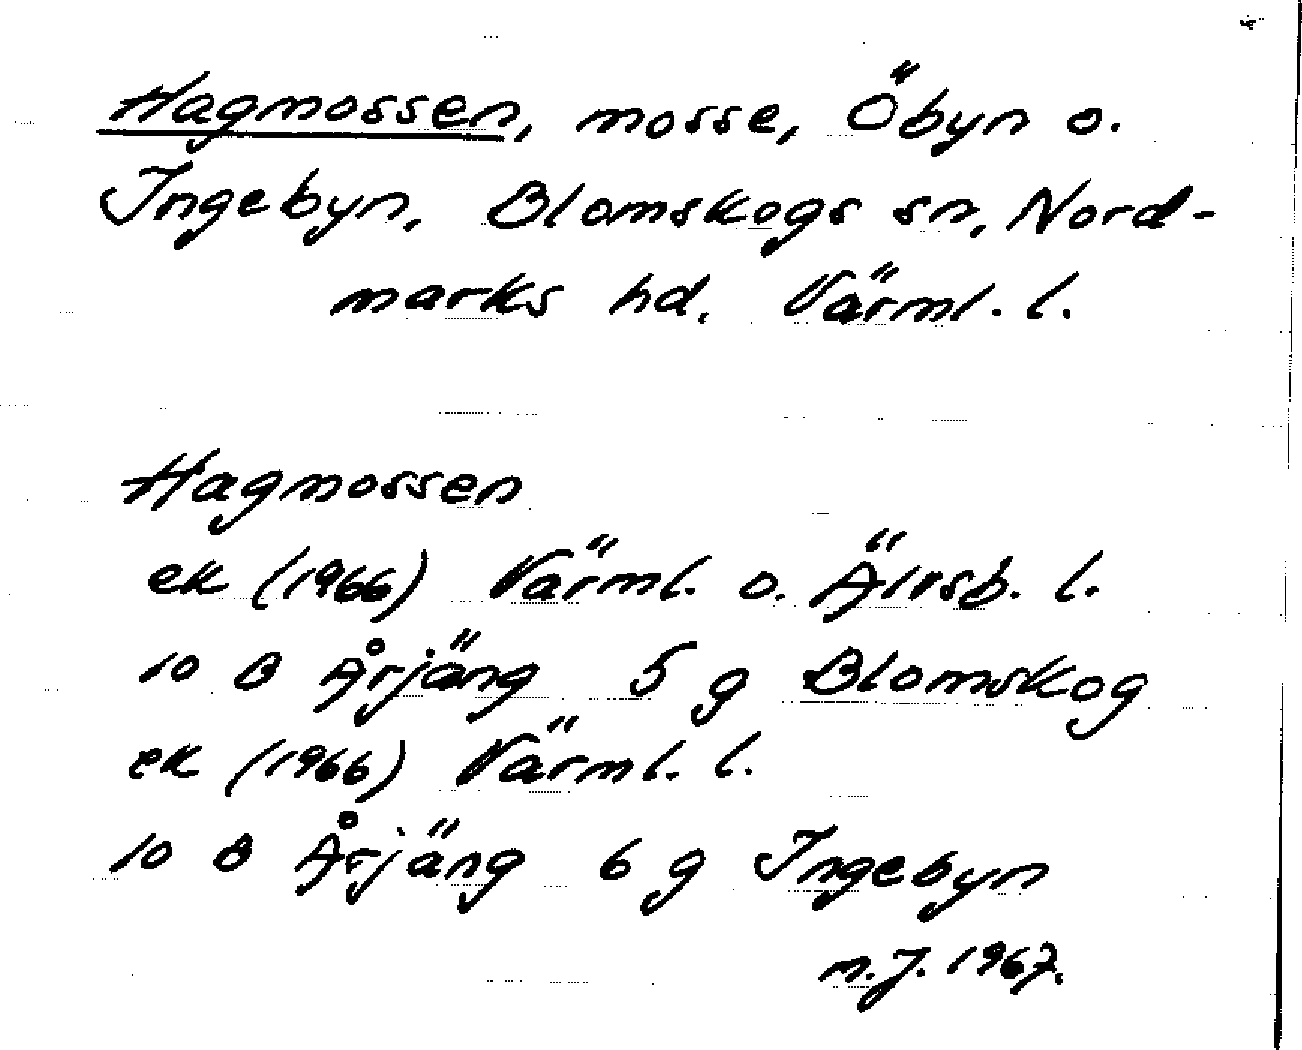 Hagmossen, mosse, Öbyn o.
Ingebyn, Blomskogs sn, Nord-
marks hd. Värml. l.
Hagmossen
ek (1966) Värml. o. Älvsb. l.
10 B Årjäng 5 g Blomskog
ek (1966) Värml. l.
10 B Årjäng 6 g Ingebyn
n.J. 1967.